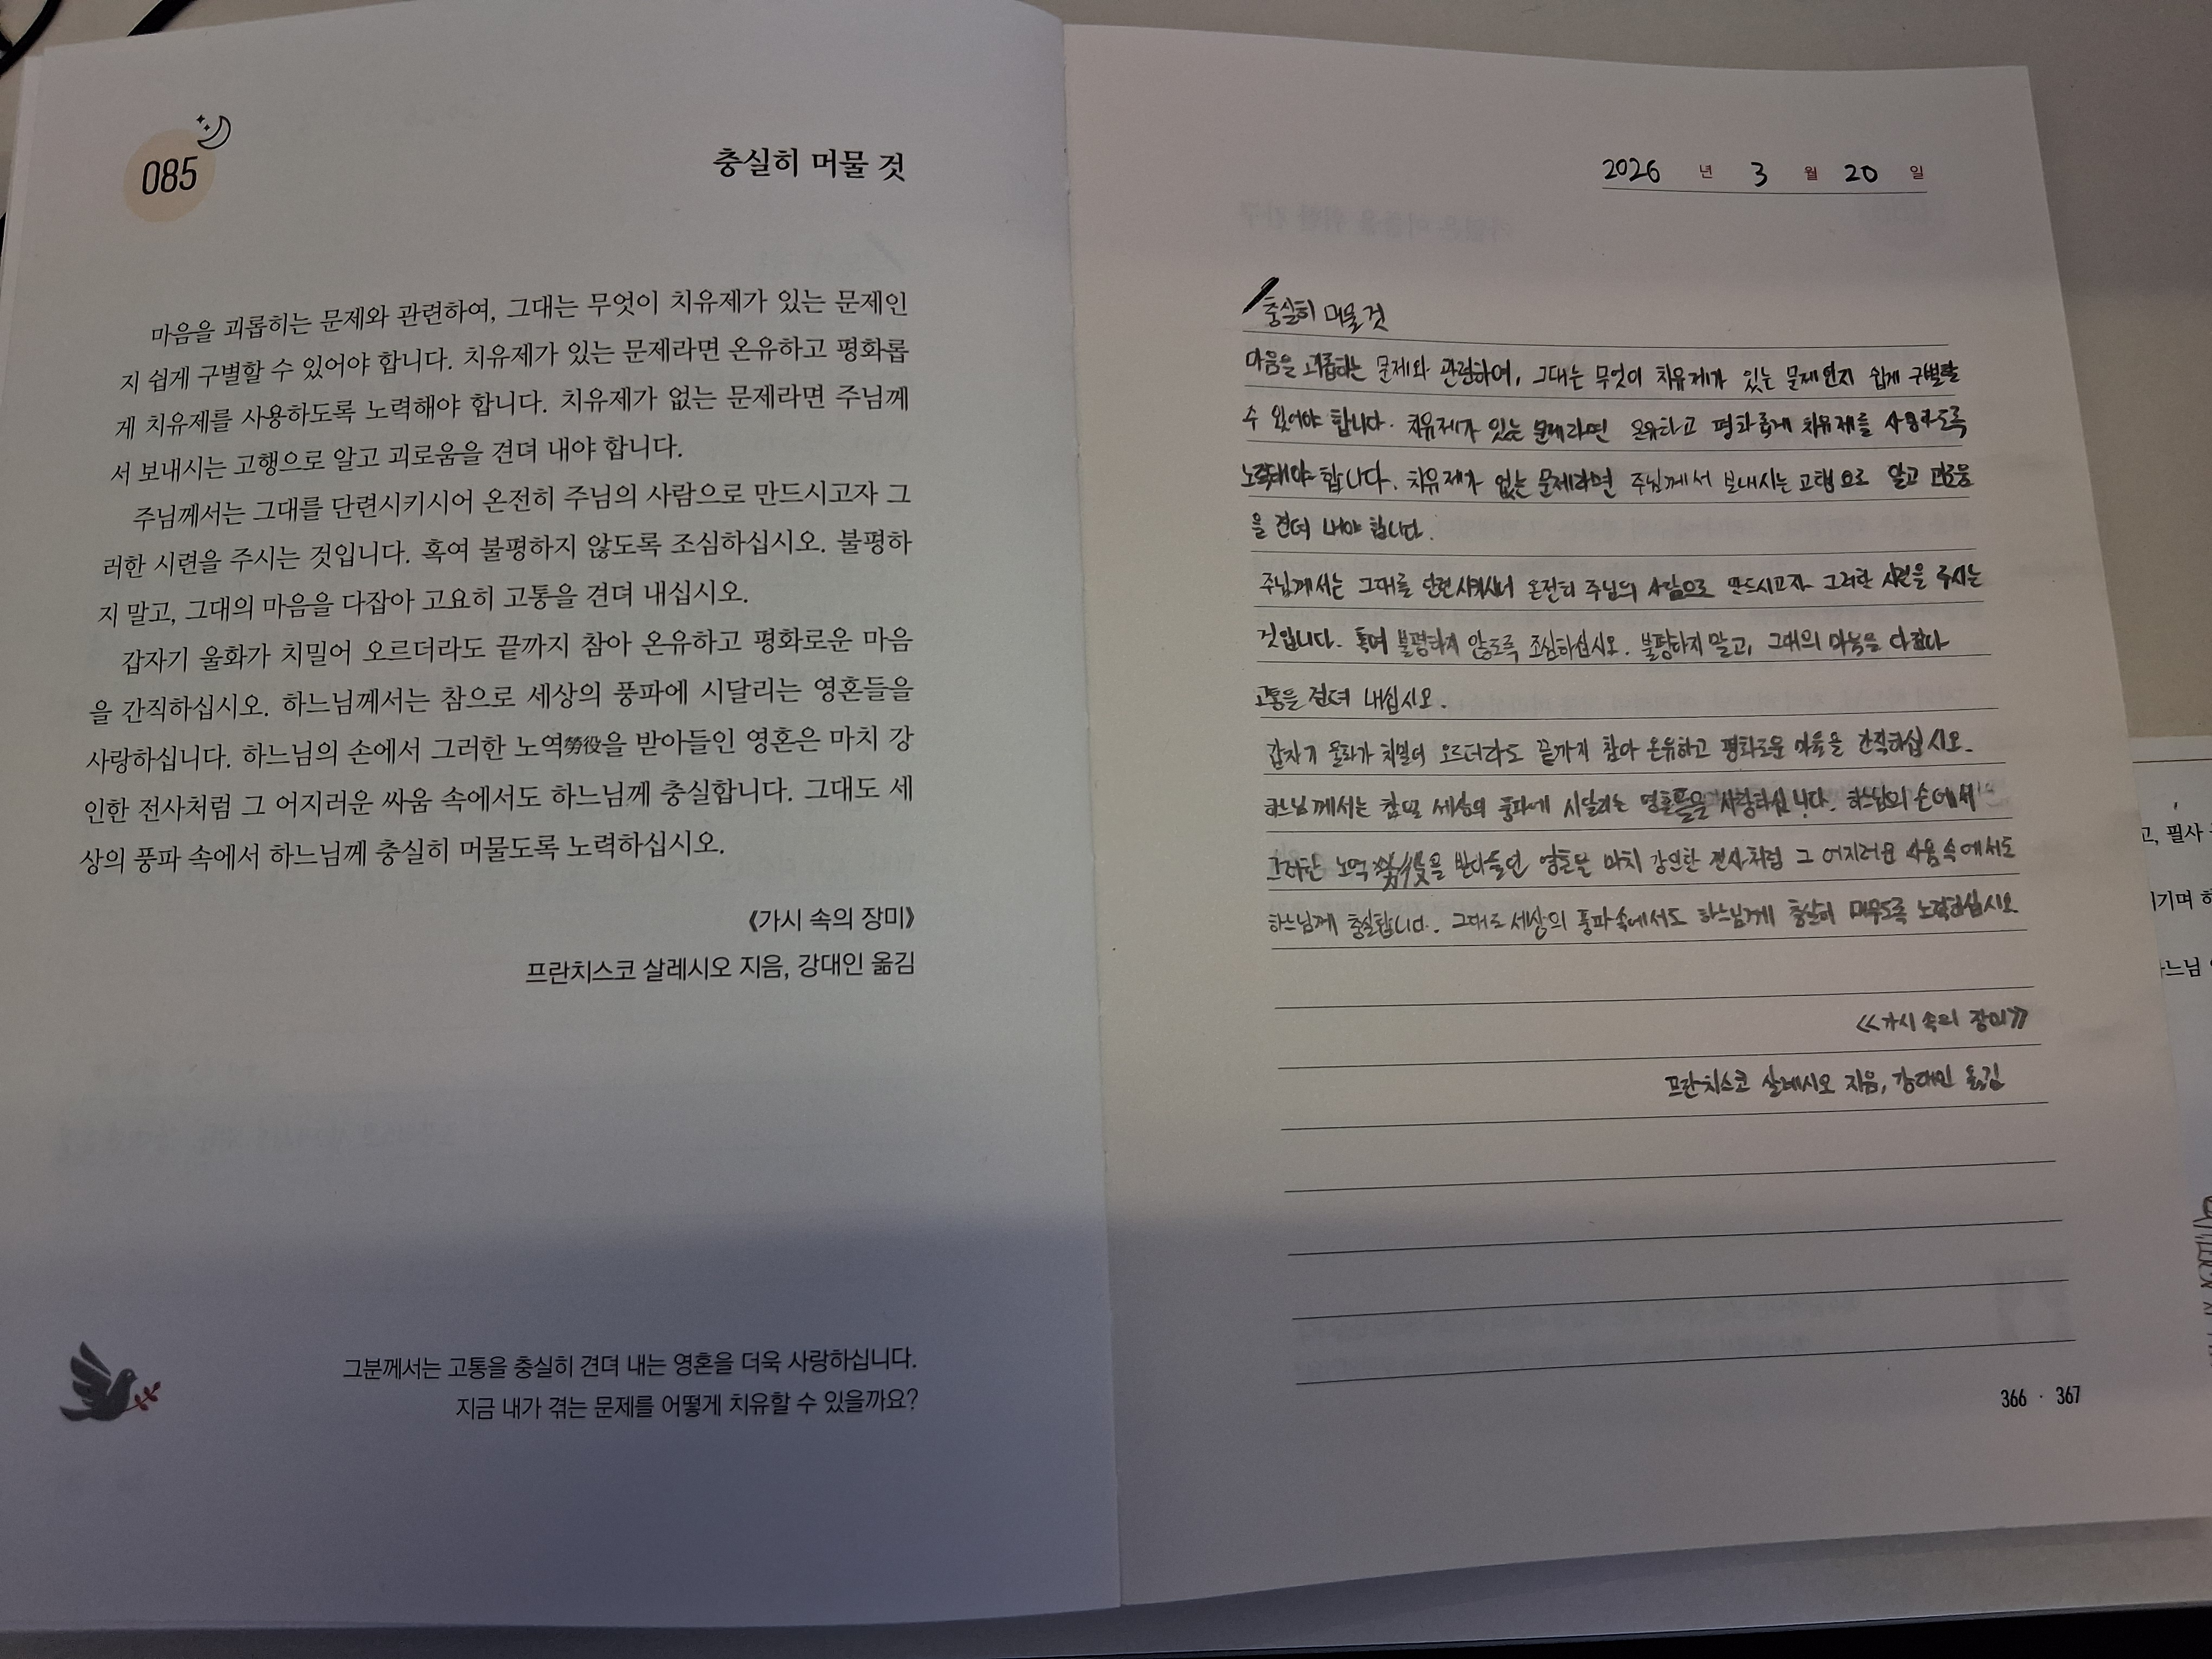 085
충실히 머물 것
마음을 괴롭히는 문제와 관련하여, 그대는 무엇이 치유제가 있는 문제인
지 쉽게 구별할 수 있어야 합니다. 치유제가 있는 문제라면 온유하고 평화롭
게 치유제를 사용하도록 노력해야 합니다. 치유제가 없는 문제라면 주님께
서 보내시는 고행으로 알고 괴로움을 견뎌 내야 합니다.
주님께서는 그대를 단련시키시어 온전히 주님의 사람으로 만드시고자 그
러한 시련을 주시는 것입니다. 혹여 불평하지 않도록 조심하십시오. 불평하
지 말고, 그대의 마음을 다잡아 고요히 고통을 견뎌 내십시오.
갑자기 울화가 치밀어 오르더라도 끝까지 참아 온유하고 평화로운 마음
을 간직하십시오. 하느님께서는 참으로 세상의 풍파에 시달리는 영혼들을
사랑하십니다. 하느님의 손에서 그러한 노역勞役을 받아들인 영혼은 마치 강
인한 전사처럼 그 어지러운 싸움 속에서도 하느님께 충실합니다. 그대도 세
상의 풍파 속에서 하느님께 충실히 머물도록 노력하십시오.
《가시 속의 장미》
프란치스코 살레시오 지음, 강대인 옮김
그분께서는 고통을 충실히 견뎌 내는 영혼을 더욱 사랑하십니다.
지금 내가 겪는 문제를 어떻게 치유할 수 있을까요?
2026 년 3 월 20 일
충실히 머물 것
마음을 괴롭히는 문제와 관련하여, 그대는 무엇이 치유제가 있는 문제인지 쉽게 구별할
수 있어야 합니다. 치유제가 있는 문제라면 온유하고 평화롭게 치유제를 사용하도록
노력해야 합니다. 치유제가 없는 문제라면 주님께서 보내시는 고행으로 알고 괴로움
을 견뎌 내야 합니다.
주님께서는 그대를 단련시키시어 온전히 주님의 사람으로 만드시고자 그러한 시련을 주시는
것입니다. 혹여 불평하지 않도록 조심하십시오. 불평하지 말고, 그대의 마음을 다잡아
고통을 견뎌 내십시오.
갑자기 울화가 치밀어 오르더라도 끝까지 참아 온유하고 평화로운 마음을 간직하십시오.
하느님께서는 세상의 풍파에 시달리는 영혼들을 사랑하십니다. 하느님의 손에서
그러한 노역 勞役을 받아들인 영혼은 마치 강인한 전사처럼 그 어지러운 싸움 속에서도
하느님께 충실합니다. 그대도 세상의 풍파 속에서도 하느님께 충실히 머무도록 노력하십시오
《가시 속의 장미》
프란치스코 살레시오 지음, 강대인 옮김
366 · 367
고, 필사
기며 하
느님